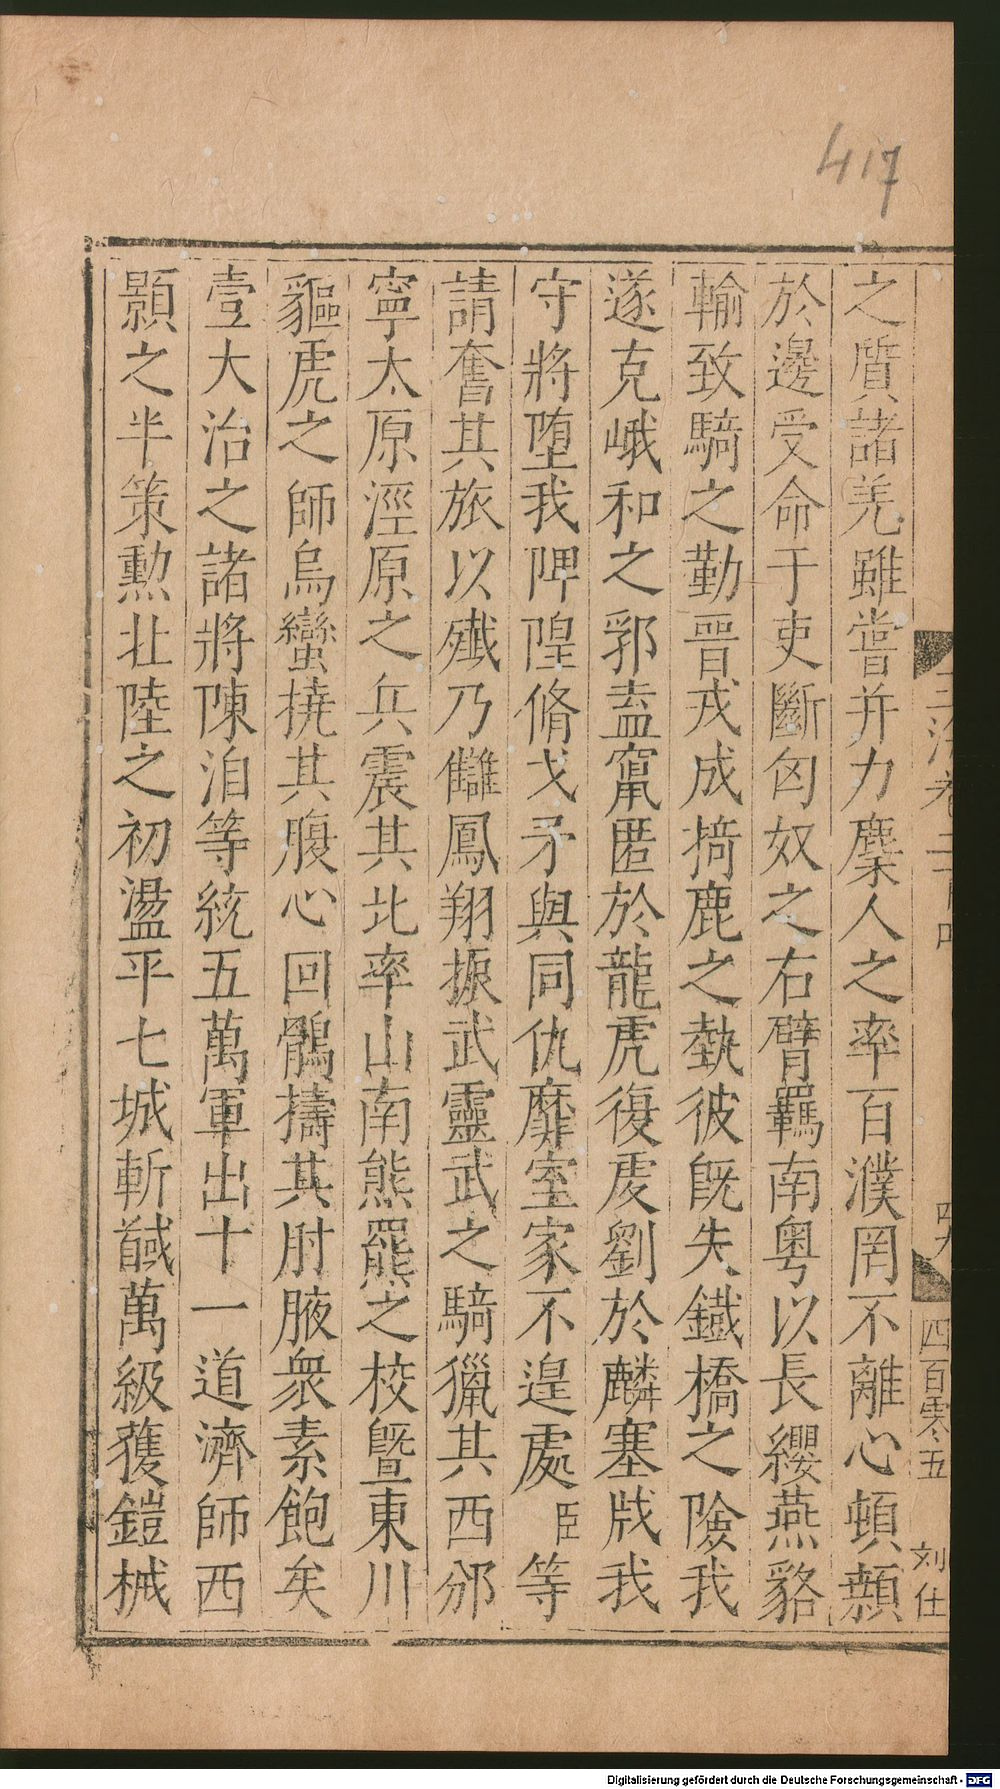 417
之質諸羌雖嘗并力麋人之率百濮罔不離心頓顙
於邊受命于吏斷匈奴之右臂羈南粵以長纓燕貉
輸致騎之勤晉戎成掎鹿之埶彼旣失鐵橋之險我
遂克峨和之郛盍竄匿於龍虎復虔劉於麟塞戕我
守將墮我陴隍脩戈矛與同仇靡室家不遑處臣等
請奮其旅以殱乃讎鳳翔振武靈武之騎獵其西邠
寧太原涇原之兵震其北率山南熊羆之校曁東川
貙虎之師烏蠻撓其腹心回鶻擣其肘腋衆素飽矣
壹大治之諸將陳洎等統五萬軍出十一道濟師西
顥之半策勲北陸之初盪平七城斬馘萬級獲鎧械
四百零五
刘仕
Digitalisierung gefördert durch die Deutsche Forschungsgemeinschaft - DFG